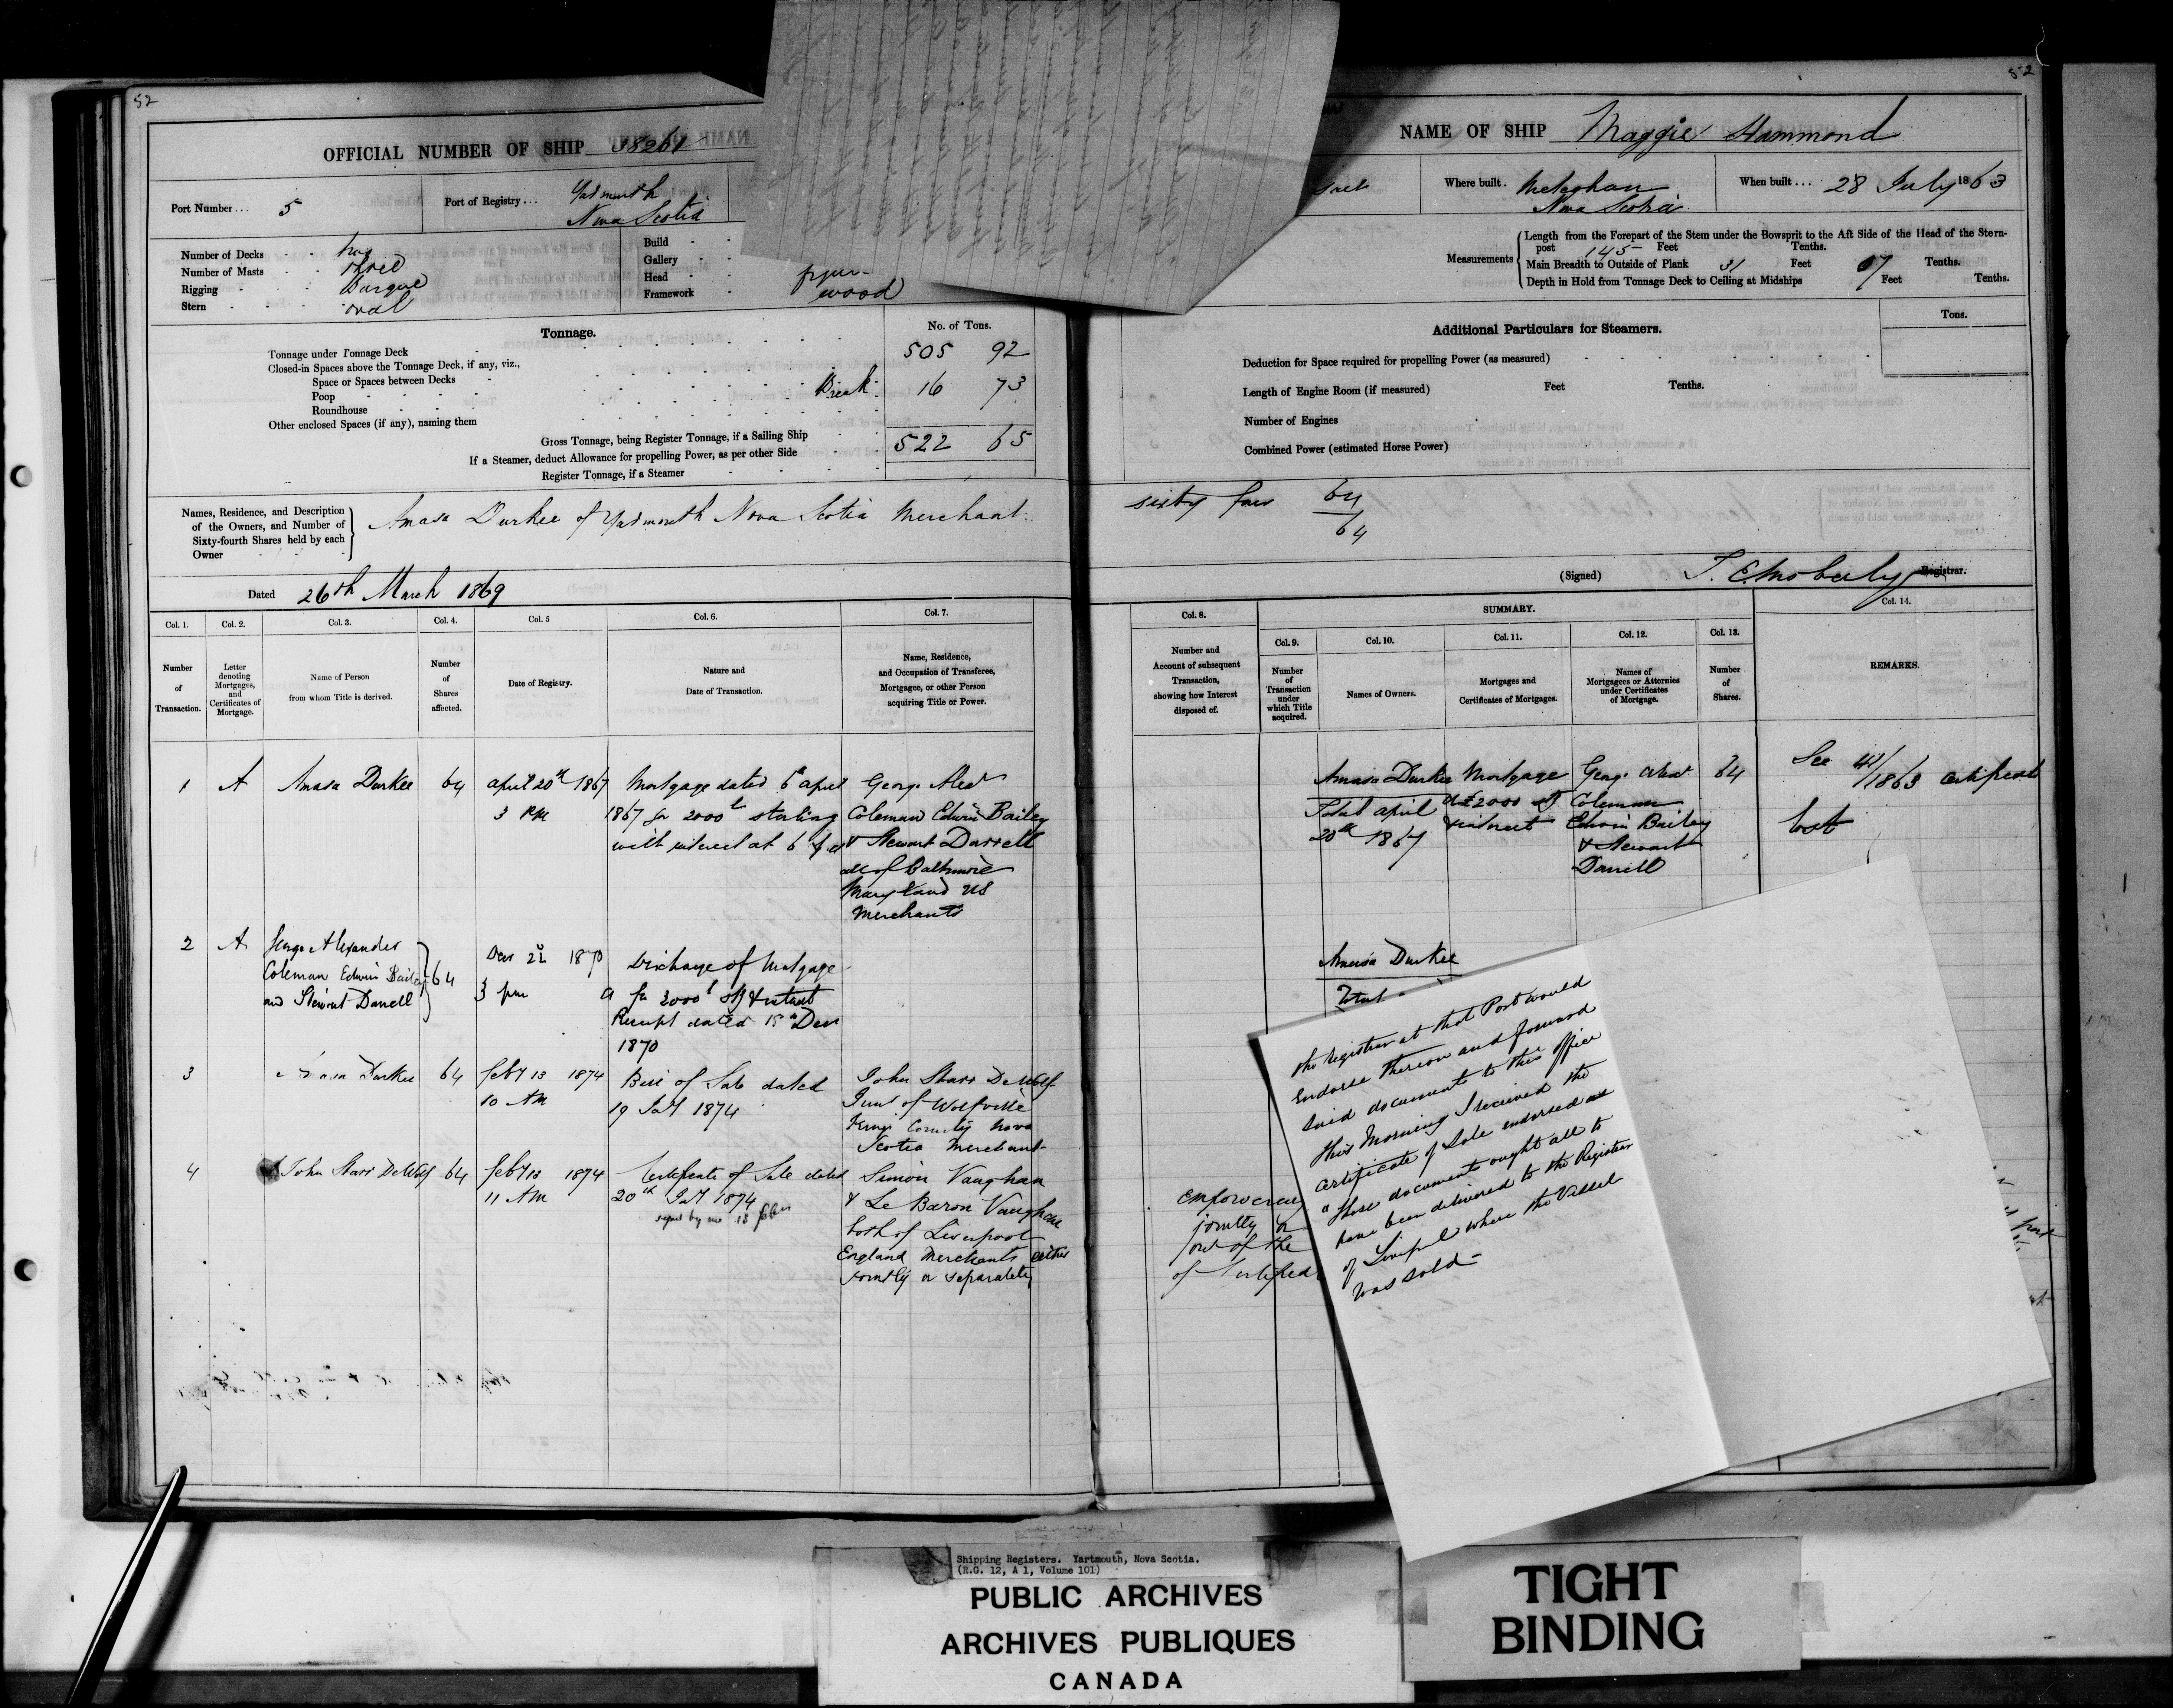 52
OFFICIAL NUMBER OF SHIP 38261
Port Number... 5
Port of Registry... Yarmouth
Nova Scotia
Number of Decks two
Number of Masts three
Rigging Barque
Stern oval
Build
Gallery
Head figure
Framework wood
Tonnage.
No. of Tons.
Tonnage under Tonnage Deck 505 92
Closed-in Spaces above the Tonnage Deck, if any, viz.,
Space or Spaces between Decks
Poop Break 16 73
Roundhouse
Other enclosed Spaces (if any), naming them
Gross Tonnage, being Register Tonnage, if a Sailing Ship 522 65
If a Steamer, deduct Allowance for propelling Power, as per other Side
Register Tonnage, if a Steamer
Names, Residence, and Description
of the Owners, and Number of
Sixty-fourth Shares held by each
Owner
Amasa Durkee of Yarmouth Nova Scotia Merchant
Dated 26th March 1869
Col. 1. Col. 2. Col. 3. Col. 4. Col. 5 Col. 6. Col. 7.
Number
of
Transaction.
Letter
denoting
Mortgages,
and
Certificates of
Mortgage.
Name of Person
from whom Title is derived.
Number
of
Shares
affected.
Date of Registry.
Nature and
Date of Transaction.
Name, Residence,
and Occupation of Transferee,
Mortgagee, or other Person
acquiring Title or Power.
1 A Amasa Durkee 64
April 20th 1867
3 PM
Mortgage dated 6th April
1867 for 2000£ sterling
with interest at 6
George Alexr
Coleman Edwin Bailey
& Stewart Darrell
all of Baltimore
Maryland US
Merchants
2 A
George Alexander
Coleman Edwin Bailey
and Stewart Darrell
64
Decr 22 1870
3 pm
Discharge of Mortgage
A for 2000£ stg & interest
Receipt dated 15th Decr
1870
3 Durkee 64
Feby 13 1874
10 AM
Bill of Sale dated
19 Jany 1874
John Starr DeWolf
Junr of Wolfville
Kings County Nova
Scotia Merchant
4 John Starr DeWolf 64
Feby 13 1874
11 AM
Certificate of Sale dated
20th Jany 1874
signed by me 13 Feb
Simon Vaughan
& Le Baron Vaughan
both of Liverpool
England Merchants either
jointly or separately
52
NAME OF SHIP Maggie Hammond
Where built. Meteghan
Nova Scotia
When built... 28 July 1863
Measurements
Length from the Forepart of the Stem under the Bowsprit to the Aft Side of the Head of the Stern-
post 145 Feet Tenths.
Main Breadth to Outside of Plank 31 Feet 07 Tenths.
Depth in Hold from Tonnage Deck to Ceiling at Midships Feet Tenths.
Additional Particulars for Steamers.
Tons.
Deduction for Space required for propelling Power (as measured)
Length of Engine Room (if measured) Feet Tenths.
Number of Engines
Combined Power (estimated Horse Power)
sixty four 64
64
(Signed) T. E. Moberly Registrar.
Col. 8.
Number and
Account of subsequent
Transaction,
showing how Interest
disposed of.
SUMMARY.
Col. 9. Col. 10. Col. 11. Col. 12. Col. 13. Col. 14.
Number
of
Transaction
under
which Title
acquired.
Names of Owners.
Mortgages and
Certificates of Mortgages.
Names of
Mortgagees or Attornies
under Certificates
of Mortgage.
Number
of
Shares.
REMARKS.
Amasa Durkee
Total April
20th 1867
Mortgage
A £2000 stg
& interest
George Alexr
Coleman
Edwin Bailey
& Stewart
Darrell
64
See 41/1863 Certificate
lost
Amasa Durkee
Total
Empowering
jointly or
out of the
of Certificate
the Registrar at that Port would
Endorse thereon and forward
said documents to this office
This Morning I received the
Certificate of Sale endorsed as
"these documents ought all to
have been delivered to the Registrar
of Liverpool where the Vessel
was sold-
Shipping Registers. Yartmouth, Nova Scotia.
(R.G. 12, A 1, Volume 101)
PUBLIC ARCHIVES
ARCHIVES PUBLIQUES
CANADA
TIGHT
BINDING